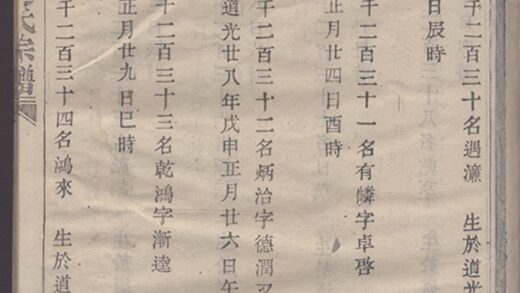 千二百三十名遇濂 生於道光
日辰時
千二百三十一名有鱗字卓啓
正月廿四日酉時
千二百三十二名炳治字德潤又
道光廿八年戊申正月廿六日午
千二百三十三名乾鴻字漸逵
正月廿九日巳時
千二百三十四名鴻來 生於道
氏宗譜